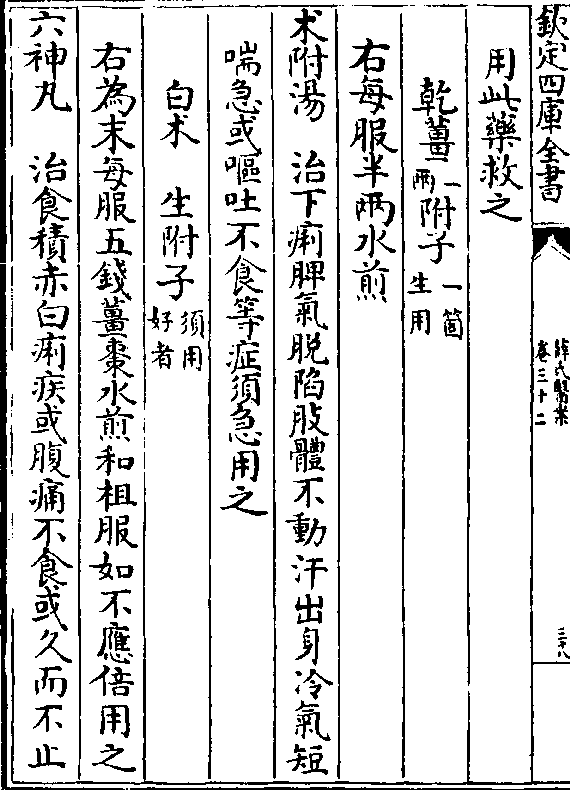 欽定四庫全書
薛氏醫案
卷三十二
三十八
用此藥救之
乾薑一兩 附子一箇生用
右每服半兩水煎
术附湯 治下痢脾氣脱陷肢體不動汗出身冷氣短
喘急或嘔吐不食等症須急用之
白术 生附子須用好者
右為末每服五錢薑棗水煎和柤服如不應倍用之
六神丸 治食積赤白痢疾或腹痛不食或久而不止